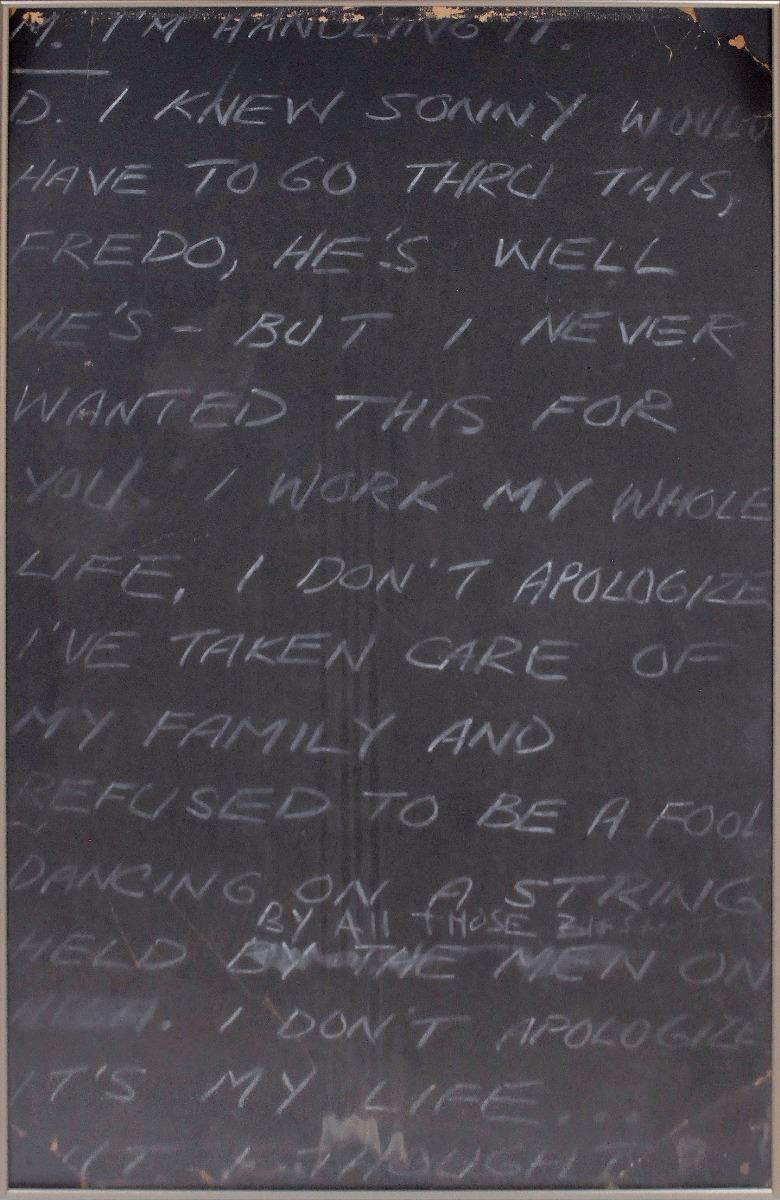 M. I'M HANDLING IT.
D. I KNEW SONNY WOULD
HAVE TO GO THRU THIS,
FREDO, HE'S WELL
HE'S - BUT I NEVER
WANTED THIS FOR
YOU. I WORK MY WHOLE
LIFE, I DON'T APOLOGIZE
I'VE TAKEN CARE OF
MY FAMILY AND
REFUSED TO BE A FOOL
DANCING ON A STRING
BY All tHOSE BIGSHOTS
HELD BY THE MEN ON
HIGH. I DON'T APOLOGIZE
IT'S MY LIFE...
BUT I THOUGHT